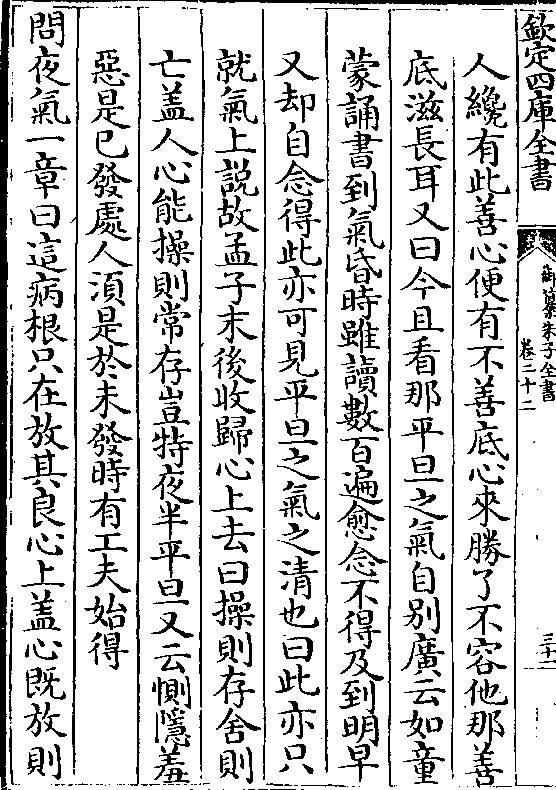 欽定四庫全書
御纂朱子全書
卷二十二
三十二
人纔有此善心便有不善底心來勝了不容他那善
底滋長耳又曰今且看那平旦之氣自别廣云如童
蒙誦書到氣昏時雖讀數百遍愈念不得及到明早
又却自念得此亦可見平旦之氣之清也曰此亦只
就氣上説故孟子末後收歸心上去曰操則存舍則
亡盖人心能操則常存豈特夜半平旦又云惻隱羞
惡是已發處人須是於未發時有工夫始得
問夜氣一章曰這病根只在放其良心上盖心既放則